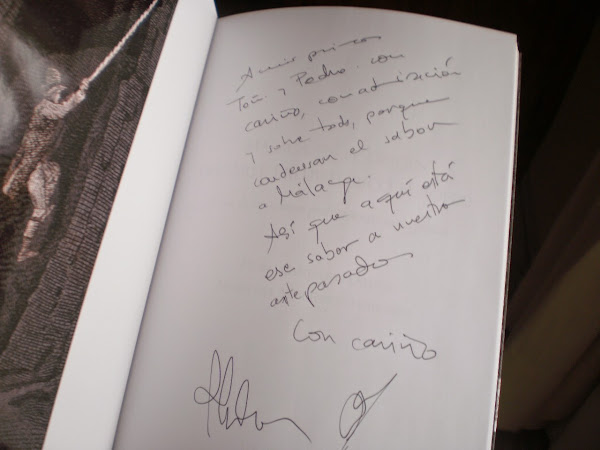 A mis primos
Toñi y Pedro. con
cariño, con admiración
y sobre todo, porque
condensan el sabor
a Málaga.
Así que aquí está
ese sabor a nuestros
antepasados
Con cariño